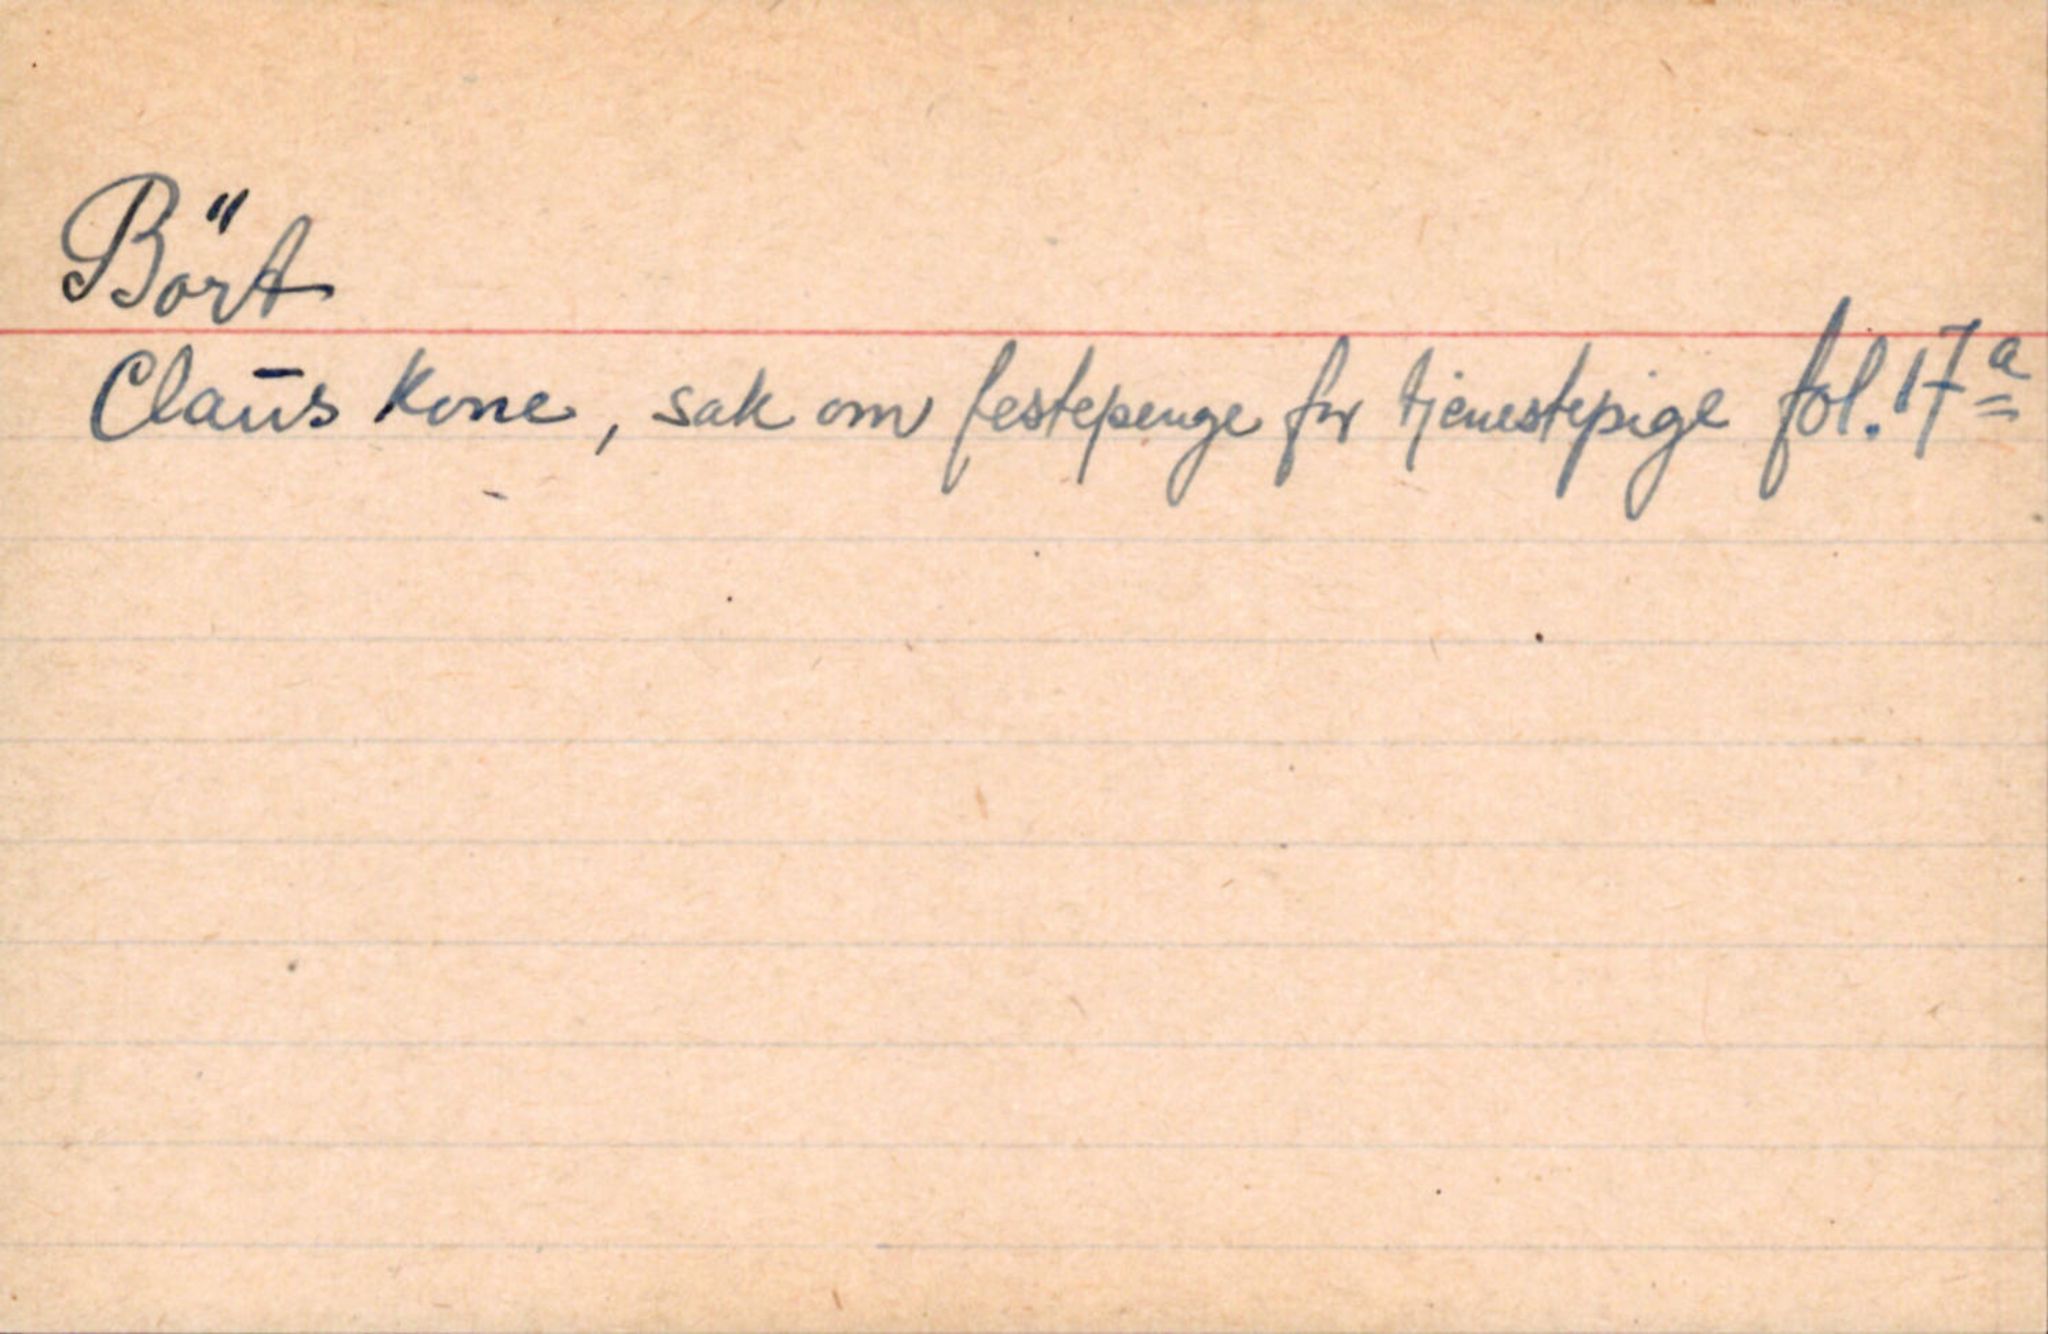 Bört
Claus Kone, sak om festepenge for tjenestepige fol. 17a